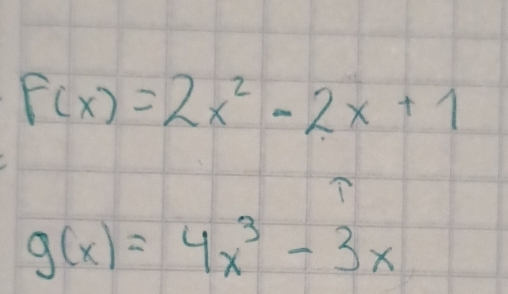 F(x) = 2x² - 2x + 1
g(x) = 4x³ - 3x